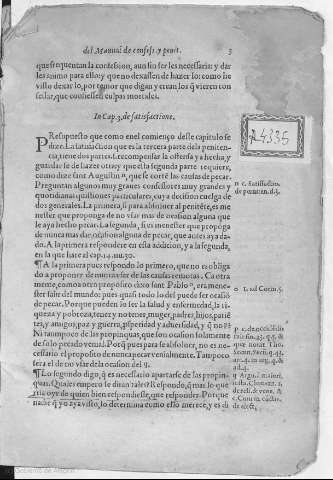 del Manual de confess. y penit. 3
que frequentan la confession, aun sin ser les necessaria: y dar
les animo para ello: y que no dexassen de hazer lo: como he
visto dexar lo, por temor que digan y crean los q̃ vieren con
fessar, que confiessen culpas mortales.
In Cap. 3. de satisfactione.
PResupuesto que como en el comienço deste capitulo se
dize. La satisfacion que es la tercera parte de la peniten-
cia, tiene dos partes. I. recompensar la offensa ya hecha, y
guardar se de hazer otra: y que esta segunda parte requiere,
como dize sant Augustin n, que se corte las causas de pecar.
Preguntan algunos muy graues confessores muy grandes y
quotidianas questiones particulares, cuya decision cuelga de
dos generales. La primera, si para absoluer al penitẽte, es me-
nester que proponga de no vsar mas de ocasion alguna que
le aya hecho pecar. La segunda, si es menester que proponga
de nunca mas dar ocasion alguna de pecar, que antes aya da-
do. A la primera respondere en esta addicion, y a la segunda,
en la que hare al cap. 14. nu. 30.
¶ A la primera pues respondo lo primero, que no es obliga
do a proponer de euitar de las causas remotas. Ca otra
mente, como a otro proposito dixo sant Pablo o, era mene-
ster salir del mundo: pues quasi todo lo del puede ser ocasiõ
de pecar. Porque pueden lo ser la salud y enfermedad, la ri-
queza y pobreza, tener y no tener, muger, padres, hijos, parië
tes, y amigos, paz y guerra, prsperidad y aduersidad, y q̃ no?
Ni tampoco de las propinquas, que son ocasion solamente
de solo pecado venial. Porq̃ pues para se absoluer, no es ne-
cessario el proposito de nunca pecar venialmente. Tampoco
sera el de no vsar de la ocasion del q.
¶ Lo segundo digo, q̃ es necessario apartarse de las propin-
quas. Quales empero se diran tales? Respondo, q̃ mas lo que
rria oyr de quien bien respondiesse, que responder. Porque
nadie q̃ yo aya visto, lo determina como esso merece, y es di
24335
n c. Satisfactio.
de pœnitẽ. d. 3.
o 1. ad Corin. 5.